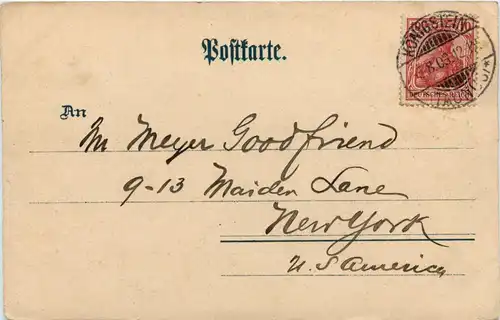 Postkarte.
KÖNIGSTEIN
DEUTSCHES REICH
An
Mr Meyer Goodfriend
9-13 Maiden Lane
New York
U. S America